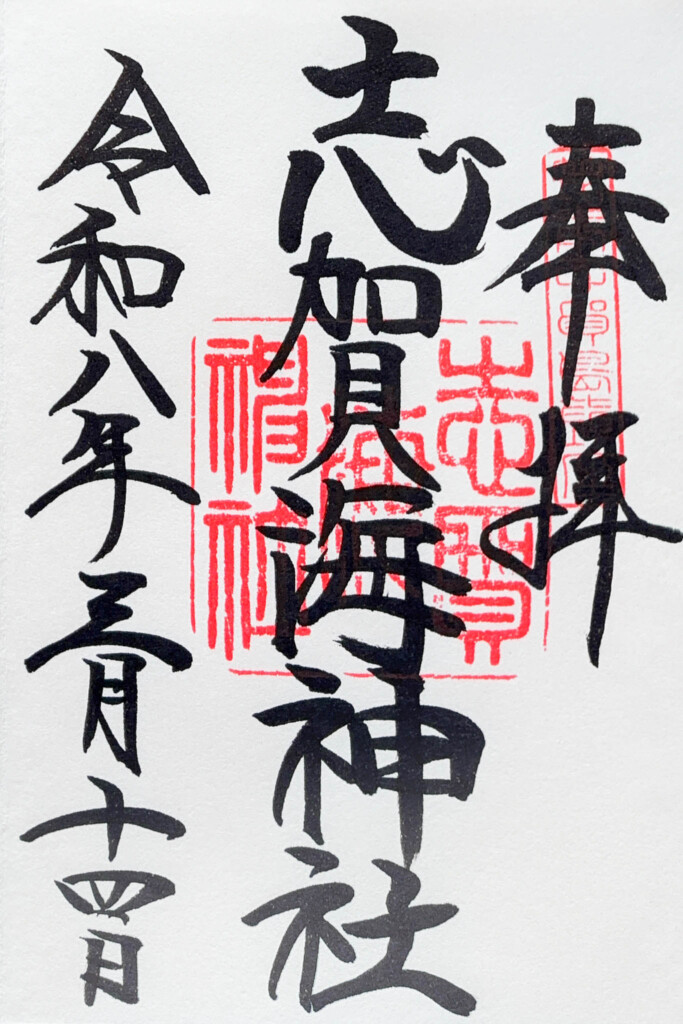 奉拝
志賀海神社
令和八年三月十四日
志賀
海
神社